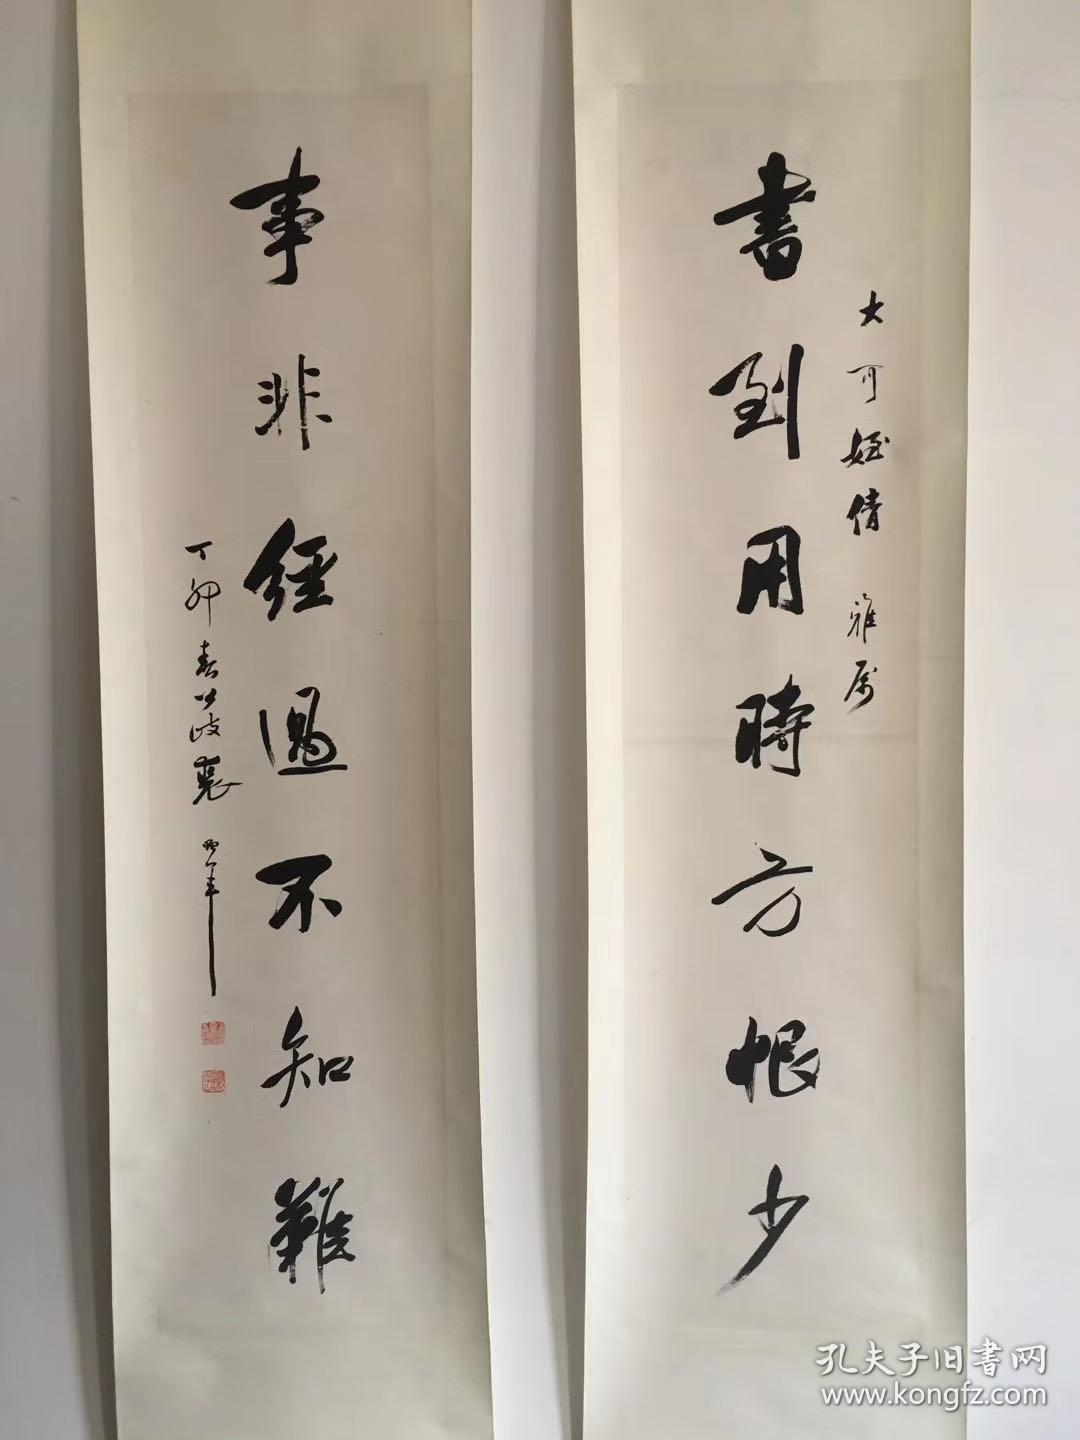 大可姪倩 雅属
書到用時方恨少
事非經過不知難
丁卯春
孔夫子旧書网
www.kongfz.com